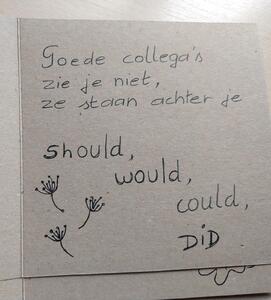 Goede collega's
zie je niet,
ze staan achter je
should,
would,
could,
DiD